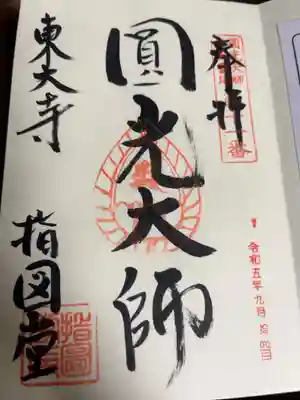 奉拝
圓光大師
東大寺
指図堂
令和五年九月拾四日